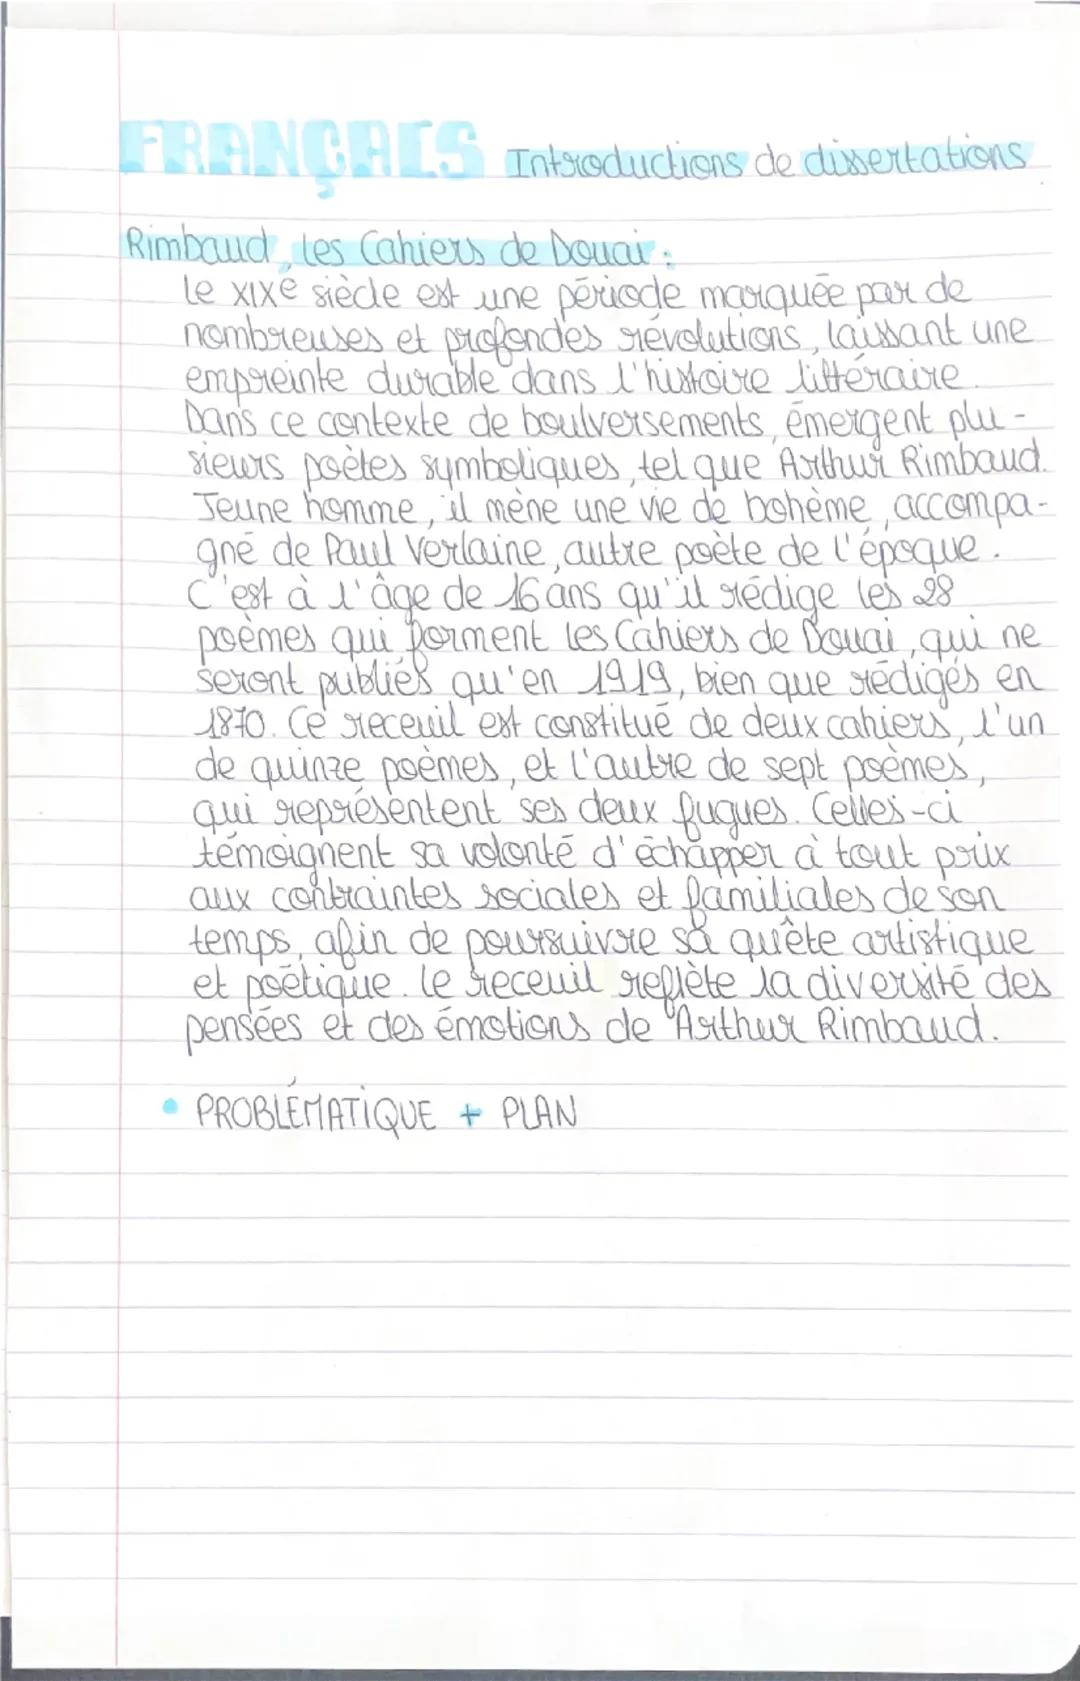 FRANÇAIS Introductions de dissertations
Rimbaud, Les Cahiers de Douai :
Le XIXe siècle est une période marquée par de
nombreuses et profondes révolutions, laissant une
empreinte durable dans l'histoire littéraire.
Dans ce contexte de boulversements, émergent plu-
sieurs poètes symboliques, tel que Arthur Rimbaud.
Jeune homme, il mène une vie de bohème, accompa-
gné de Paul Verlaine, autre poète de l'époque.
C'est à l'âge de 16 ans qu'il rédige les 28
poèmes qui forment Les Cahiers de Douai, qui ne
seront publiés qu'en 1919, bien que rédigés en
1870. Ce receuil est constitué de deux cahiers, l'un
de quinze poèmes, et l'autre de sept poèmes,
qui représentent ses deux fugues. Celles-ci
témoignent sa volonté d'échapper à tout prix
aux contraintes sociales et familiales de son
temps, afin de poursuivre sa quête artistique
et poétique. Le receuil reflète la diversité des
pensées et des émotions de Arthur Rimbaud.
• PROBLÉMATIQUE + PLAN